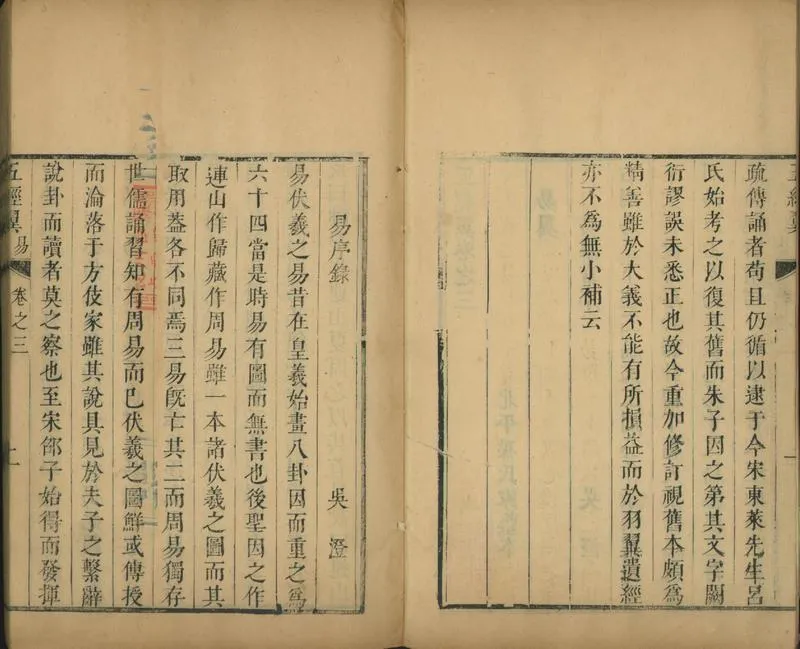 疏傳誦者苟且仍循以逮于今宋東萊先生呂
氏始考之以復其舊而朱子因之第其文字闕
衍謬誤未悉正也故今重加修訂視舊本頗爲
精善雖於大義不能有所損益而於羽翼遺經
亦不爲無小補云
易序錄
吳澄
易伏羲之易昔在皇羲始畫八卦因而重之爲
六十四當是時易有圖而無書也後聖因之作
連山作歸藏作周易雖一本諸伏羲之圖而其
取用葢各不同焉三易旣亡其二而周易獨存
世儒誦習知有周易而已伏羲之圖鮮或傳授
而淪落于方伎家雖其說具見於夫子之繫辭
說卦而讀者莫之察也至宋邵子始得而發揮
五經翼 易 卷之三